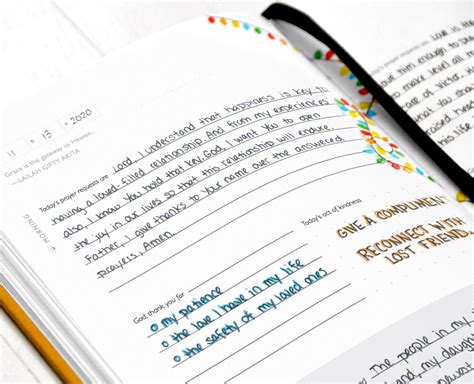 11 / 13 / 2020
Grace is the gateway to Heaven.
—LAILAH GIFTY AKITA
MORNING
Today's prayer requests are Lord, I understand that happiness is key to
having a loved-filled relationship. And from my experiences
also, I know You hold that key. God, I want you to open
the joy in our lives so that this relationship will endure.
Father, I give thanks to Your name over the answered
prayers, Amen.
God thank you for
my patience
the love I have in my life
the safety of my loved ones
Today's act of kindness
GIVE A COMPLIMENT
RECONNECT WITH
LOST FRIEND
Today's prayer requests are Love is
him enough to
to make level all
of Victor
that you
raised
The people in my
and, my daug
newest